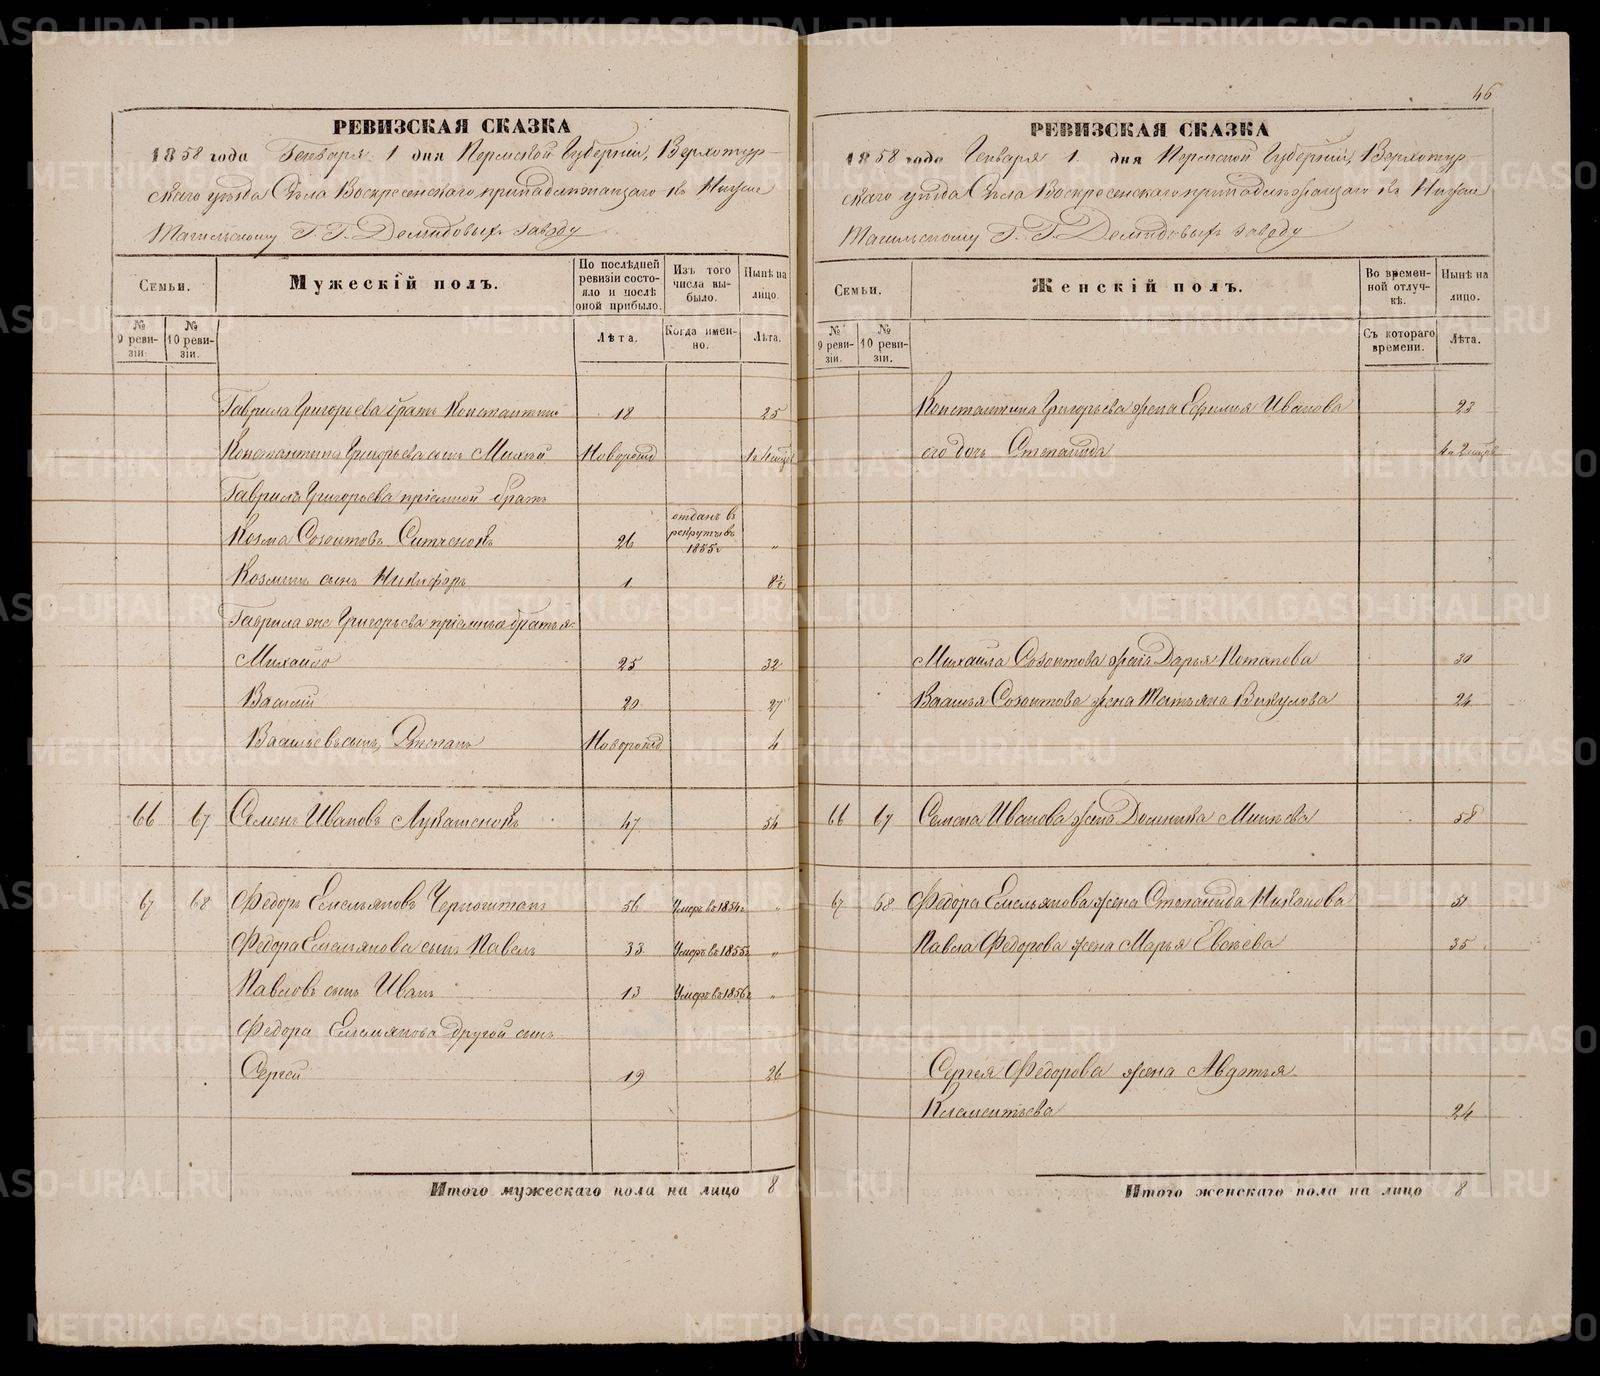 46
РЕВИЗСКАЯ СКАЗКА
1858 года Генваря 1 дня Пермской Губерніи, Верхотур-
скаго уѣзда Села Воскресенскаго принадлежащаго къ Нижне
Тагильскому Г.Г. Демидовыхъ заводу
Семьи.
Мужескій полъ.
По послѣдней ревизіи состояло и послѣ оной прибыло.
Изъ того числа выбыло.
Нынѣ на лицо.
№ 9 ревизіи.
№ 10 ревизіи.
Лѣта.
Когда именно.
Лѣта.
Гаврила Григорьева братъ Константинъ 18 25
Константина Григорьева сынъ Новорожд
Гаврила Григорьева пріемной братъ
Козма Созонтовъ 26 отданъ в рекруты въ 1855г „
Козминъ сынъ Никифоръ 1 8½
Гаврила же Григорьева пріемные братья:
Михайло 25 32
Василій 20 27
Васильевъ сынъ Степанъ Новорожд 4
66 67 Семенъ Ивановъ Лукашенокъ 47 54
67 68 Федоръ Емельяновъ 56 Умеръ въ 1854г „
Федора Емельянова сынъ Павелъ 33 Умеръ въ 1855г „
Павловъ сынъ Иванъ 13 Умеръ въ 1856г „
Федора Емельянова другой сынъ
Сергей 19 26
Итого мужескаго пола на лицо 8
РЕВИЗСКАЯ СКАЗКА
1858 года Генваря 1 дня Пермской Губерніи, Верхотур-
скаго уѣзда Села Воскресенскаго принадлежащаго къ Нижне
Тагильскому Г.Г. Демидовыхъ заводу
Семьи.
Женскій полъ.
Во временной отлучкѣ.
Нынѣ на лицо.
№ 9 ревизіи.
№ 10 ревизіи.
Съ котораго времени.
Лѣта.
Константина Григорьева жена Ефимия Иванова 23
его дочь Степанида
Михаила Созонтова жена Дарья Потапова 30
Василья Созонтова жена Татьяна Викулова 24
66 67 Семена Иванова жена Домника 58
67 68 Федора Емельянова жена Степанида 51
Павла Федорова жена Марья 35
Сергея Федорова жена Авдотья
Клементьева 24
Итого женскаго пола на лицо 8
METRIKI.GASO-URAL.RU